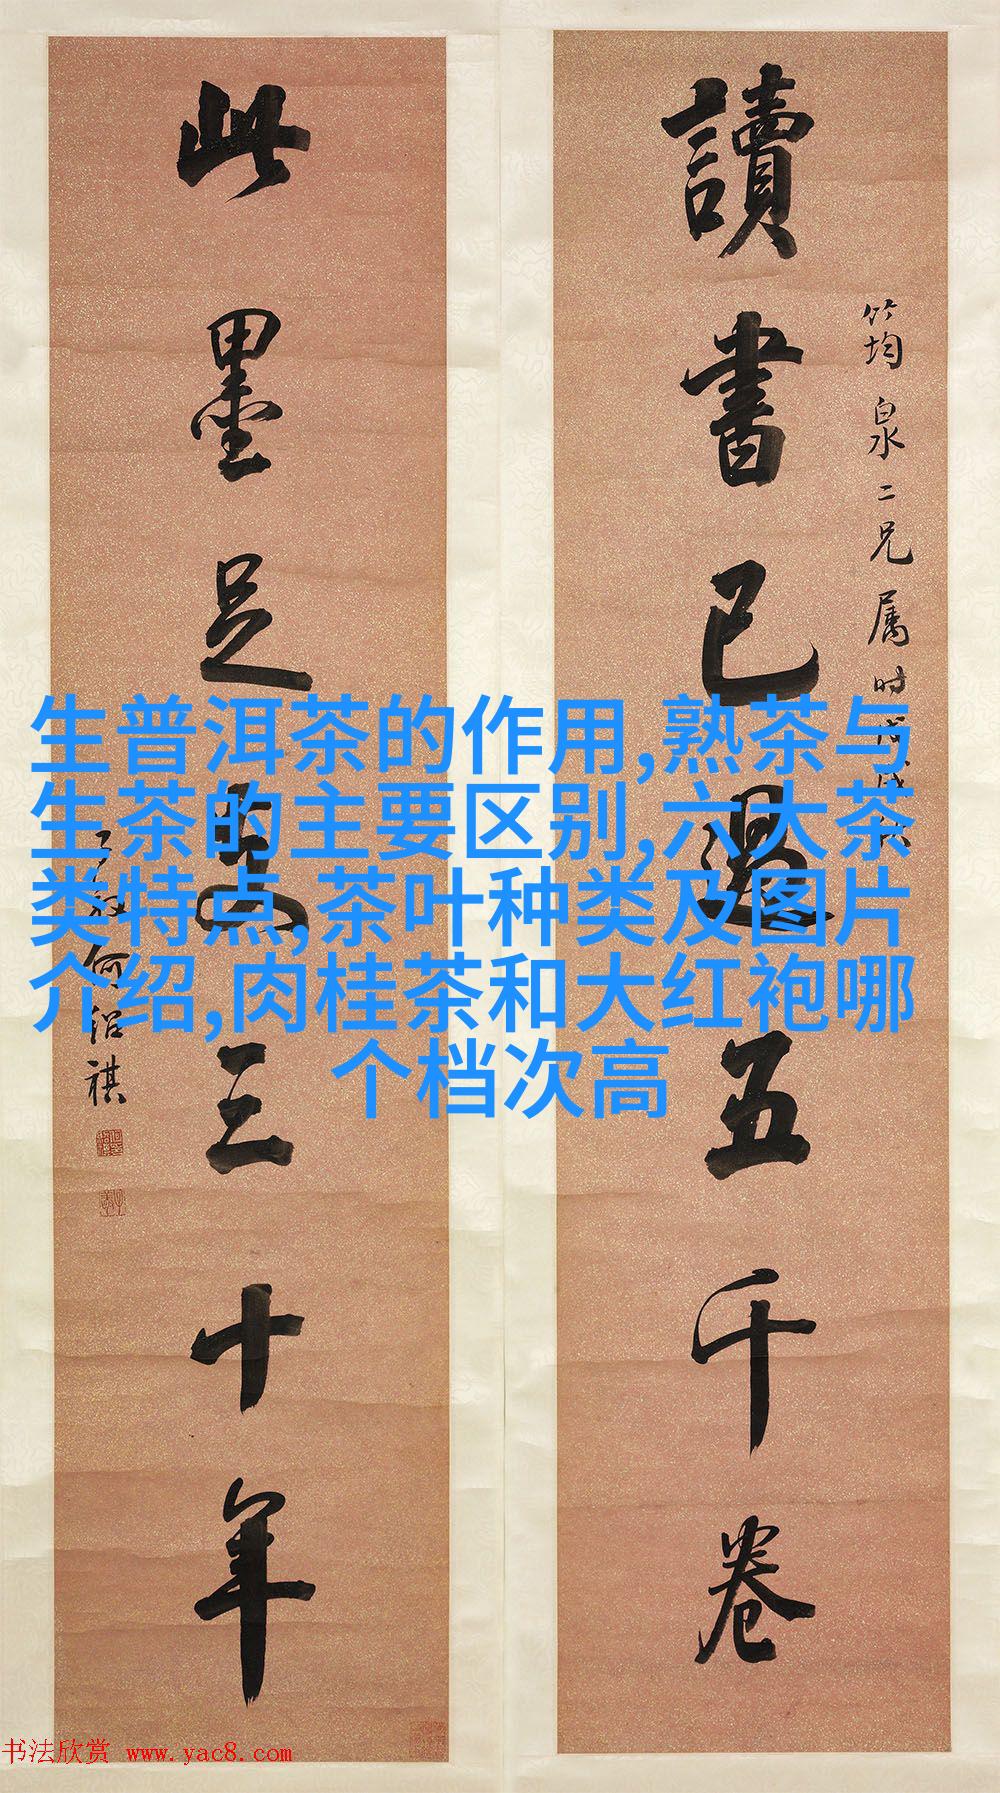 讀書已過五千卷
筠泉二兄属时
此墨足支三十年
何绍祺
生普洱茶的作用,熟茶与
生茶的主要区别,六大茶
类特点,茶叶种类及图片
介绍,肉桂茶和大红袍哪
个档次高
书法欣赏 www.yac8.com